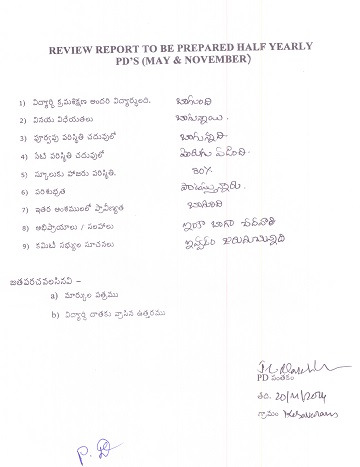 REVIEW REPORT TO BE PREPARED HALF YEARLY
PD'S (MAY & NOVEMBER)
1) విద్యార్థి క్రమశిక్షణ అందరి విద్యార్థులది. బాగుంది
2) వినయ విధేయతలు బాగున్నాయి.
3) పూర్వపు పరిస్థితి చదువులో బాగున్నది.
4) నేటి పరిస్థితి చదువులో
5) స్కూలుకు హాజరు పరిస్థితి. 80%
6) పరిశుభ్రత పాటిస్తున్నారు.
7) ఇతర అంశములలో ప్రావీణ్యత బాగుంది
8) అభిప్రాయాలు / సలహాలు ఇంకా బాగా చదవాలి
9) కమిటి సభ్యుల సూచనలు ఇవ్వడం జరుగుచున్నది
జతపరచవలసినవి –
a) మార్కుల పత్రము
b) విద్యార్థి దాతకు వ్రాసిన ఉత్తరము
PD సంతకం
తేది. 20/11/2014
గ్రామం Kesavaram
P. D